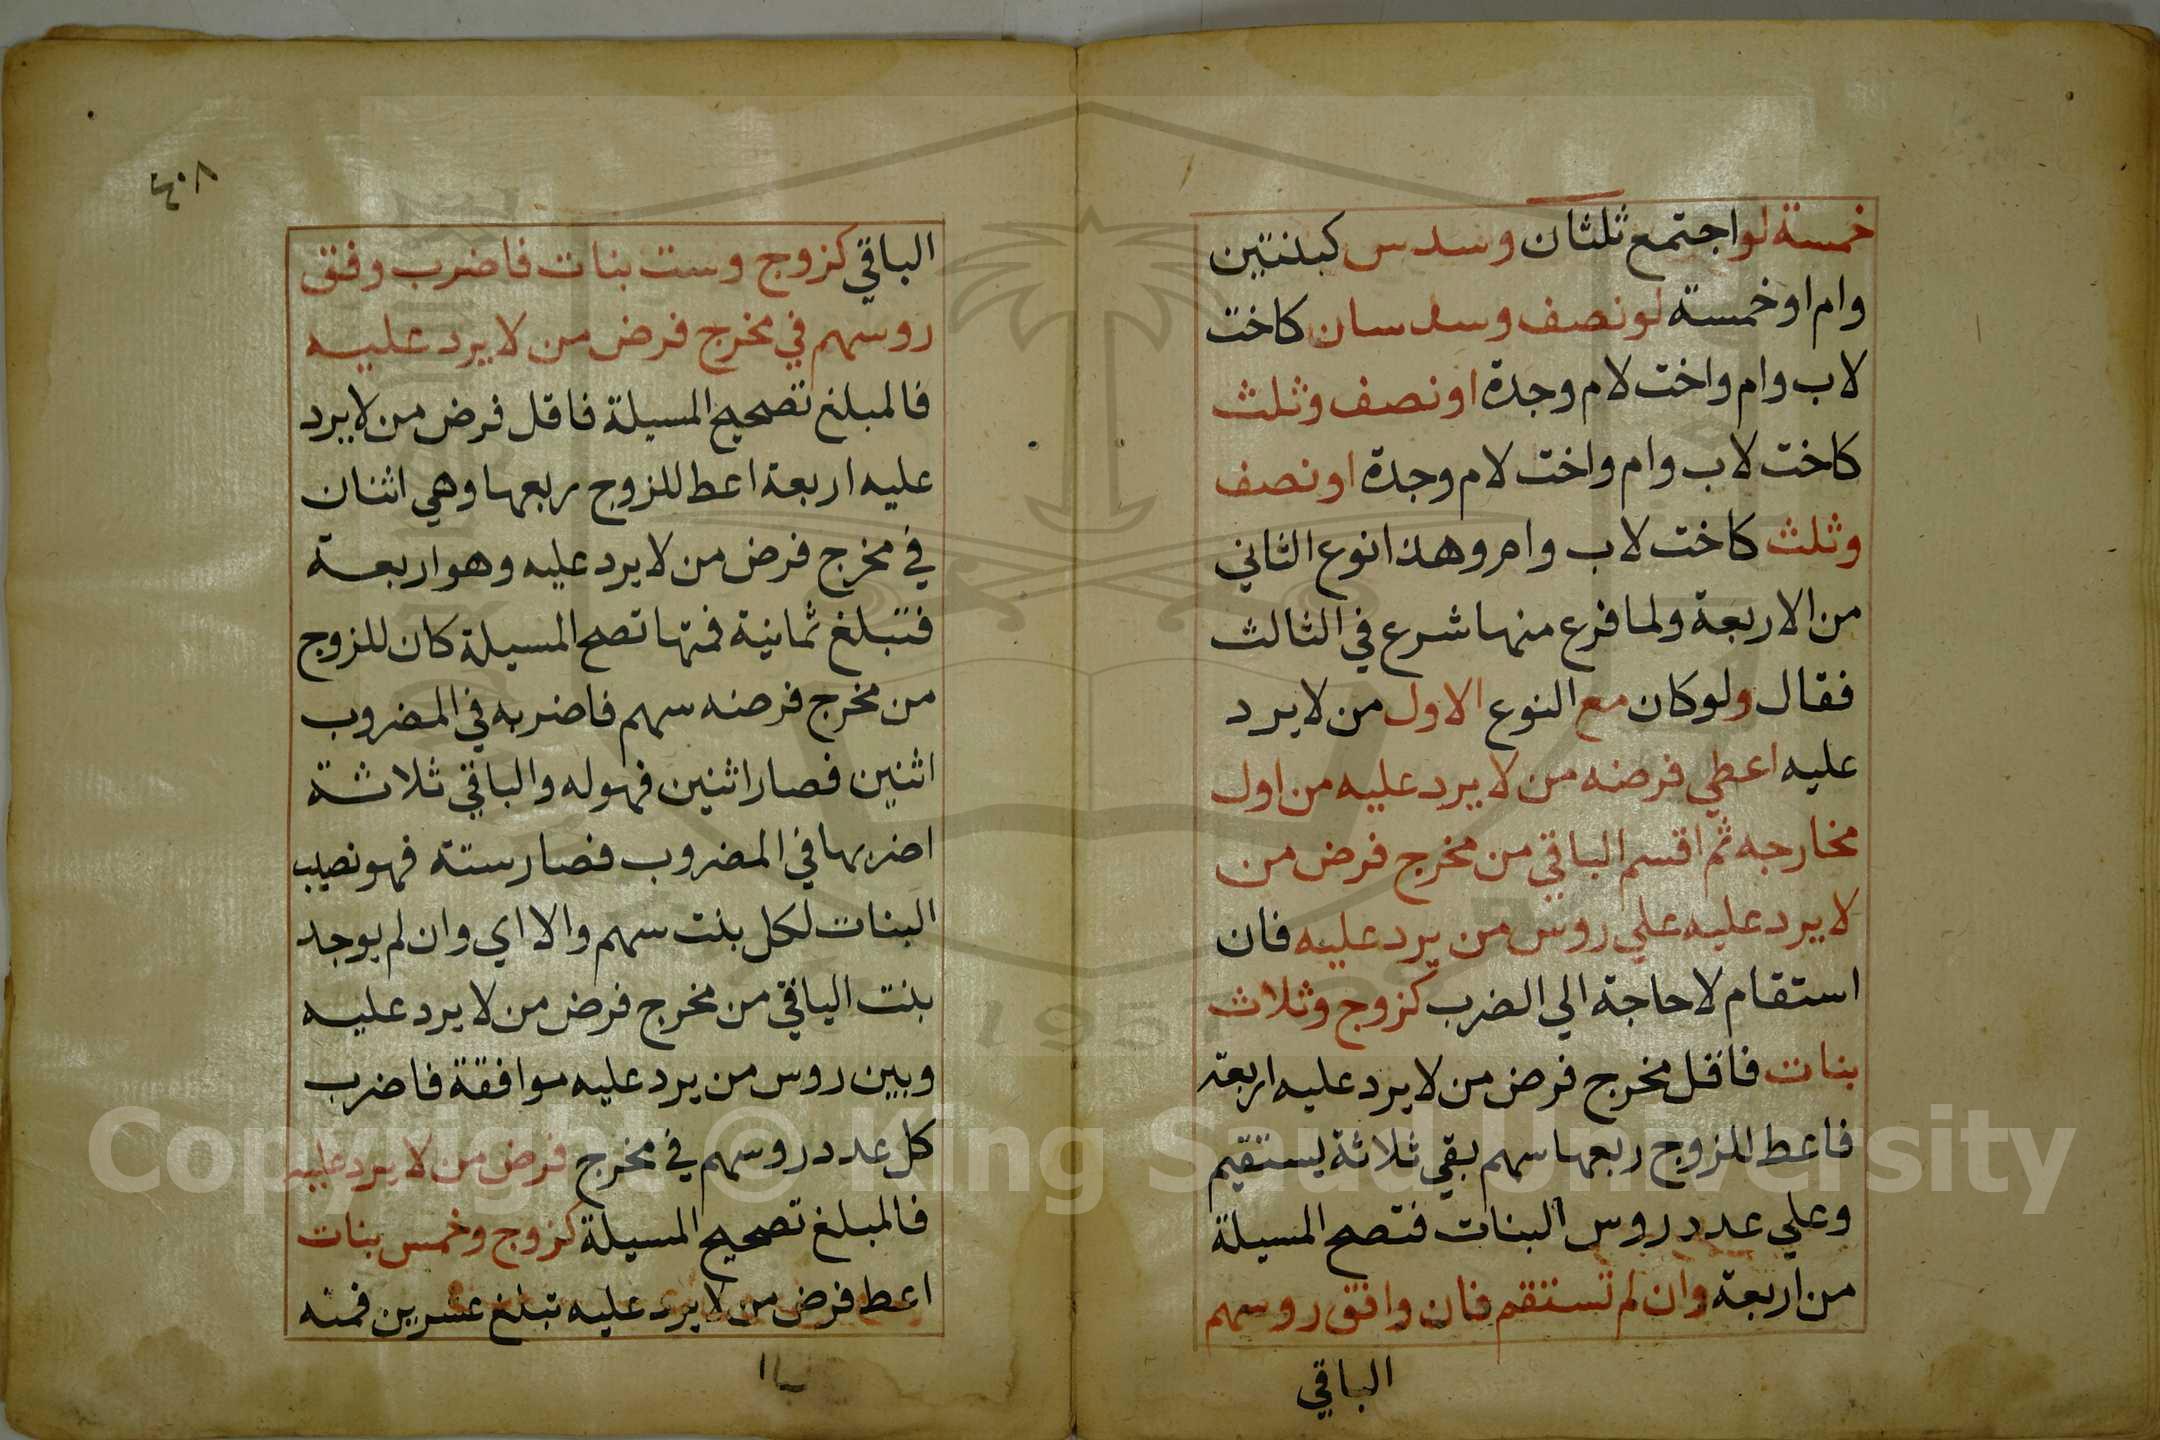 خمسة لو اجتمع ثلثان وسدس كبنتين
وام او خمسة لو نصف وسدسان كاخت
لاب وام واخت لام وجدة او نصف وثلث
كاخت لاب وام واخت لام وجدة او نصف
وثلث كاخت لاب وام وهذا نوع الثاني
من الاربعة ولما فرع منها شرع في الثالث
فقال ولو كان مع النوع الاول من لا يرد
عليه اعطي فرضه من لا يرد عليه من اول
مخارجه ثم اقسم الباقي من مخرج فرض من
لا يرد عليه علي روس من يرد عليه فان
استقام لا حاجة الي الضرب كزوج وثلاث
بنات فاقل مخرج فرض من لا يرد عليه اربعة
فاعط للزوج ربعها سهم بقي ثلاثة يستقيم
وعلي عدد روس البنات فتصح المسيلة
من اربعة وان لم تستقم فان وافق روسهم
الباقي
٤٠٨
الباقي كزوج وست بنات فاضرب وفق
روسهم في مخرج فرض من لا يرد عليه
فالمبلغ تصحيح المسيلة فاقل فرض من لا يرد
عليه اربعة اعط للزوج ربعها وهي اثنان
في مخرج فرض من لا يرد عليه وهو اربعة
فتبلغ ثمانية فمنها تصح المسيلة كان للزوج
من مخرج فرضه سهم فاضربه في المضروب
اثنين فصار اثنين فهو له والباقي ثلاثة
اضربها في المضروب فصار ستة فهو نصيب
البنات لكل بنت سهم والا اي وان لم يوجد
بنت الباقي من مخرج فرض من لا يرد عليه
وبين روس من يرد عليه موافقة فاضرب
كل عدد روسهم في مخرج فرض من لا يرد عليه
فالمبلغ تصحيح المسيلة كزوج وخمس بنات
اعط فرض من لا يرد عليه تبلغ عشرين فمنه
Copyright © King Saud University
1957